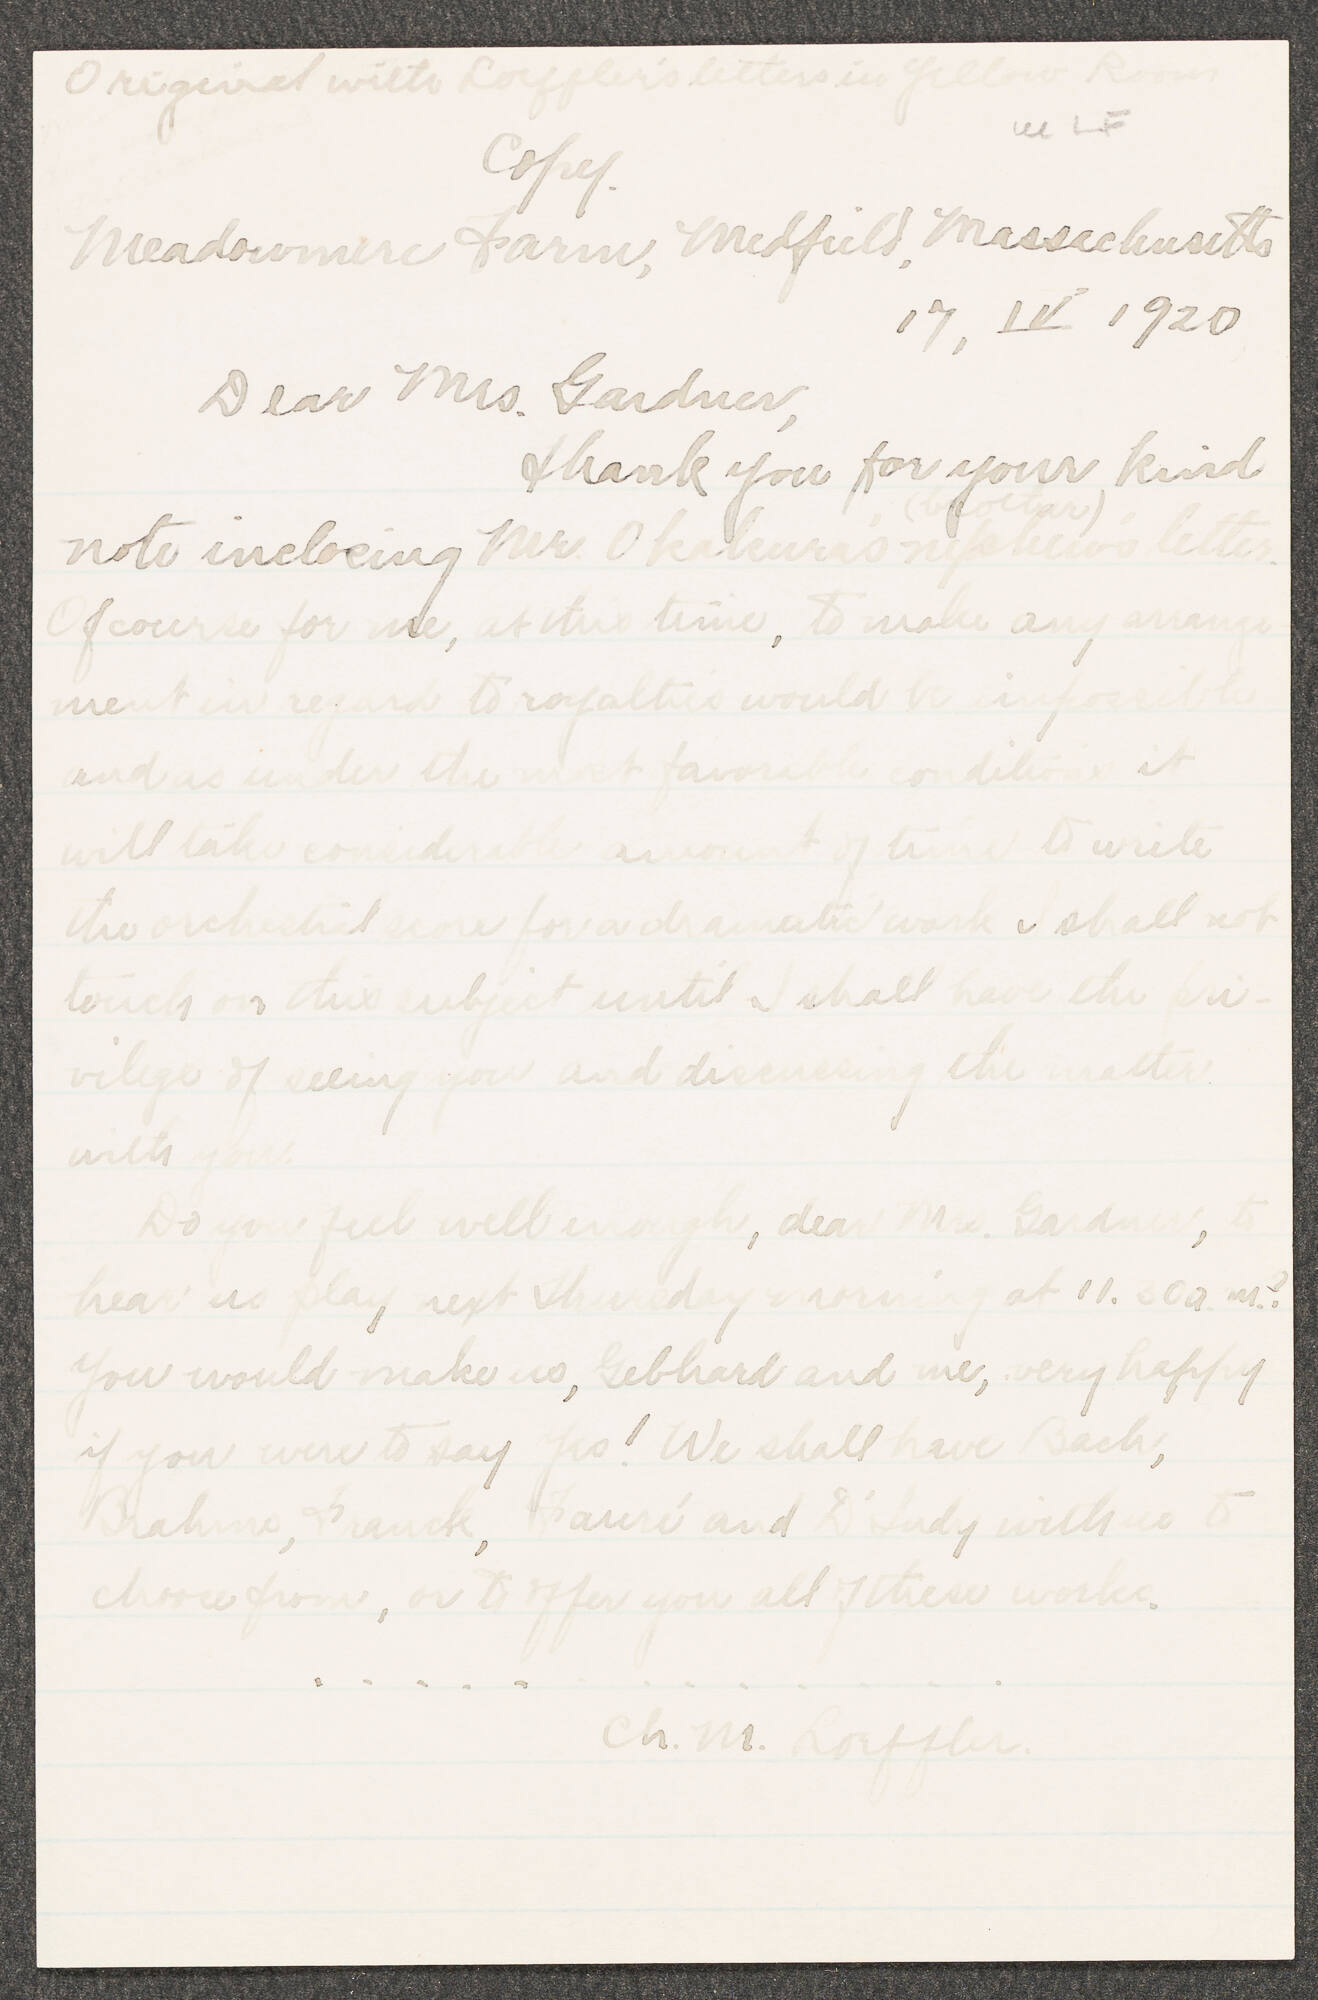 Original with Loeffler's letters in Yellow Room
M L F
Copy.
Meadowmere Farm, Medfield, Massachusetts
17, IV 1920
Dear Mrs. Gardner,
Thank you for your kind
(brother)
note inclosing Mr. Okakura's nephew's letter.
Of course for me, at this time, to make any arrange-
ment in regard to royalties would be impossible
and as under the most favorable conditions it
will take considerable amount of time to write
the orchestral score for a dramatic work I shall not
touch on this subject until I shall have the pri-
vilege of seeing you and discussing the matter
with you.
Do you feel well enough, dear Mrs. Gardner, to
hear us play next Thursday morning at 11.30 a. m.?
You would make us, Gebhard and me, very happy
if you were to say Yes! We shall have Bach,
Brahms, Franck, Fauré and D'Indy with us to
choose from, or to offer you all of these works.
. . . . . . . . . . . . .
Ch. M. Loeffler.